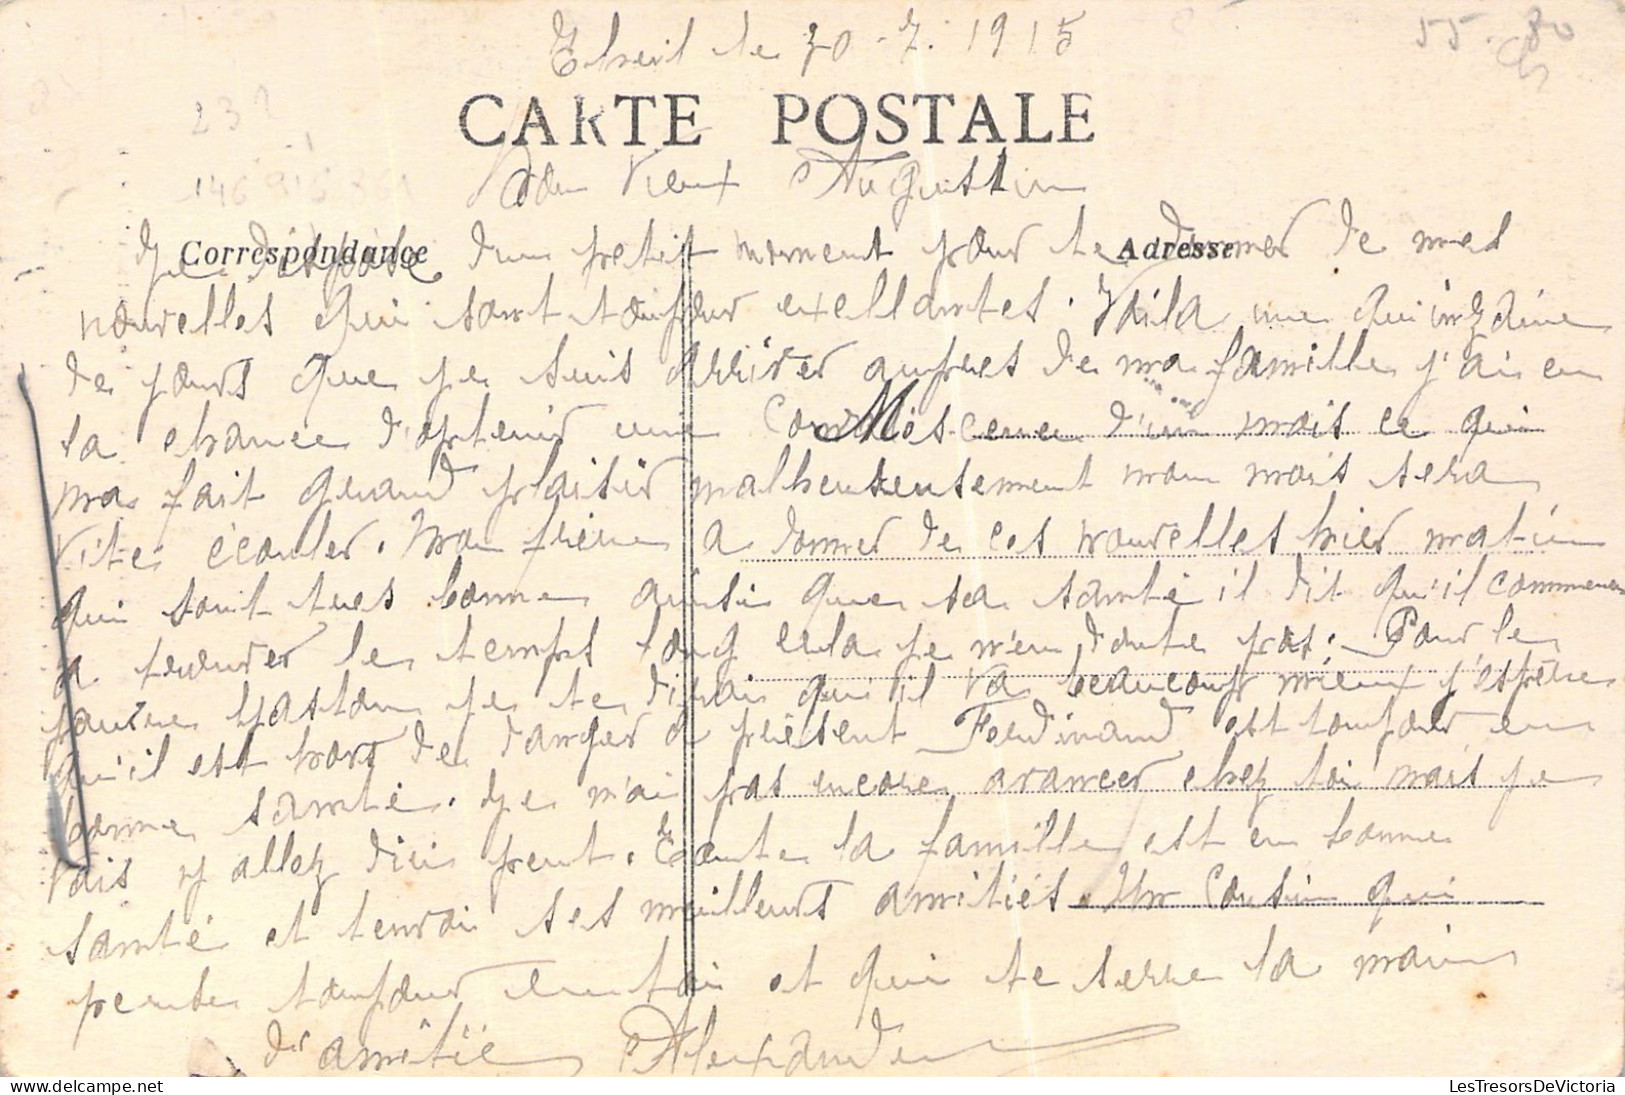 le 30-7-1915
55. 80
CARTE POSTALE
231
146 915 861
Mon Vieux Augustin
Correspondance
Adresse
Je dispose d'un petit moment pour te donner de mes
nouvelles qui sont toujour exellantes. Voila une quinzaine
de jours que je suis arriver aupres de ma famille j'ai eu
la chance d'optenir une d'un mois ce qui
ma fait grand plaisir malheureusement mon mois sera
vite écouler. Mon frère a donner de ces nouvelles hier matin
qui sont tres bonne ainsi que sa santé il dit qu'il commence
a trouver le temps long cela je m'en doute pas. Pour le
pauvre Gaston je te dirai qu'il va beaucoup mieux j'espère
qu'il est hors de danger a présent Ferdinand est toujour en
bonne santé. Je n'ai pas encore avancer chez toi mais je
vais y allez d'ici peut. Toute la famille est en bonne
santé et ses meilleurs amitiés. Un Cousin qui
pense toujour en toi et qui te serre la main
d'amitié Alexandre
LesTresorsDeVictoria